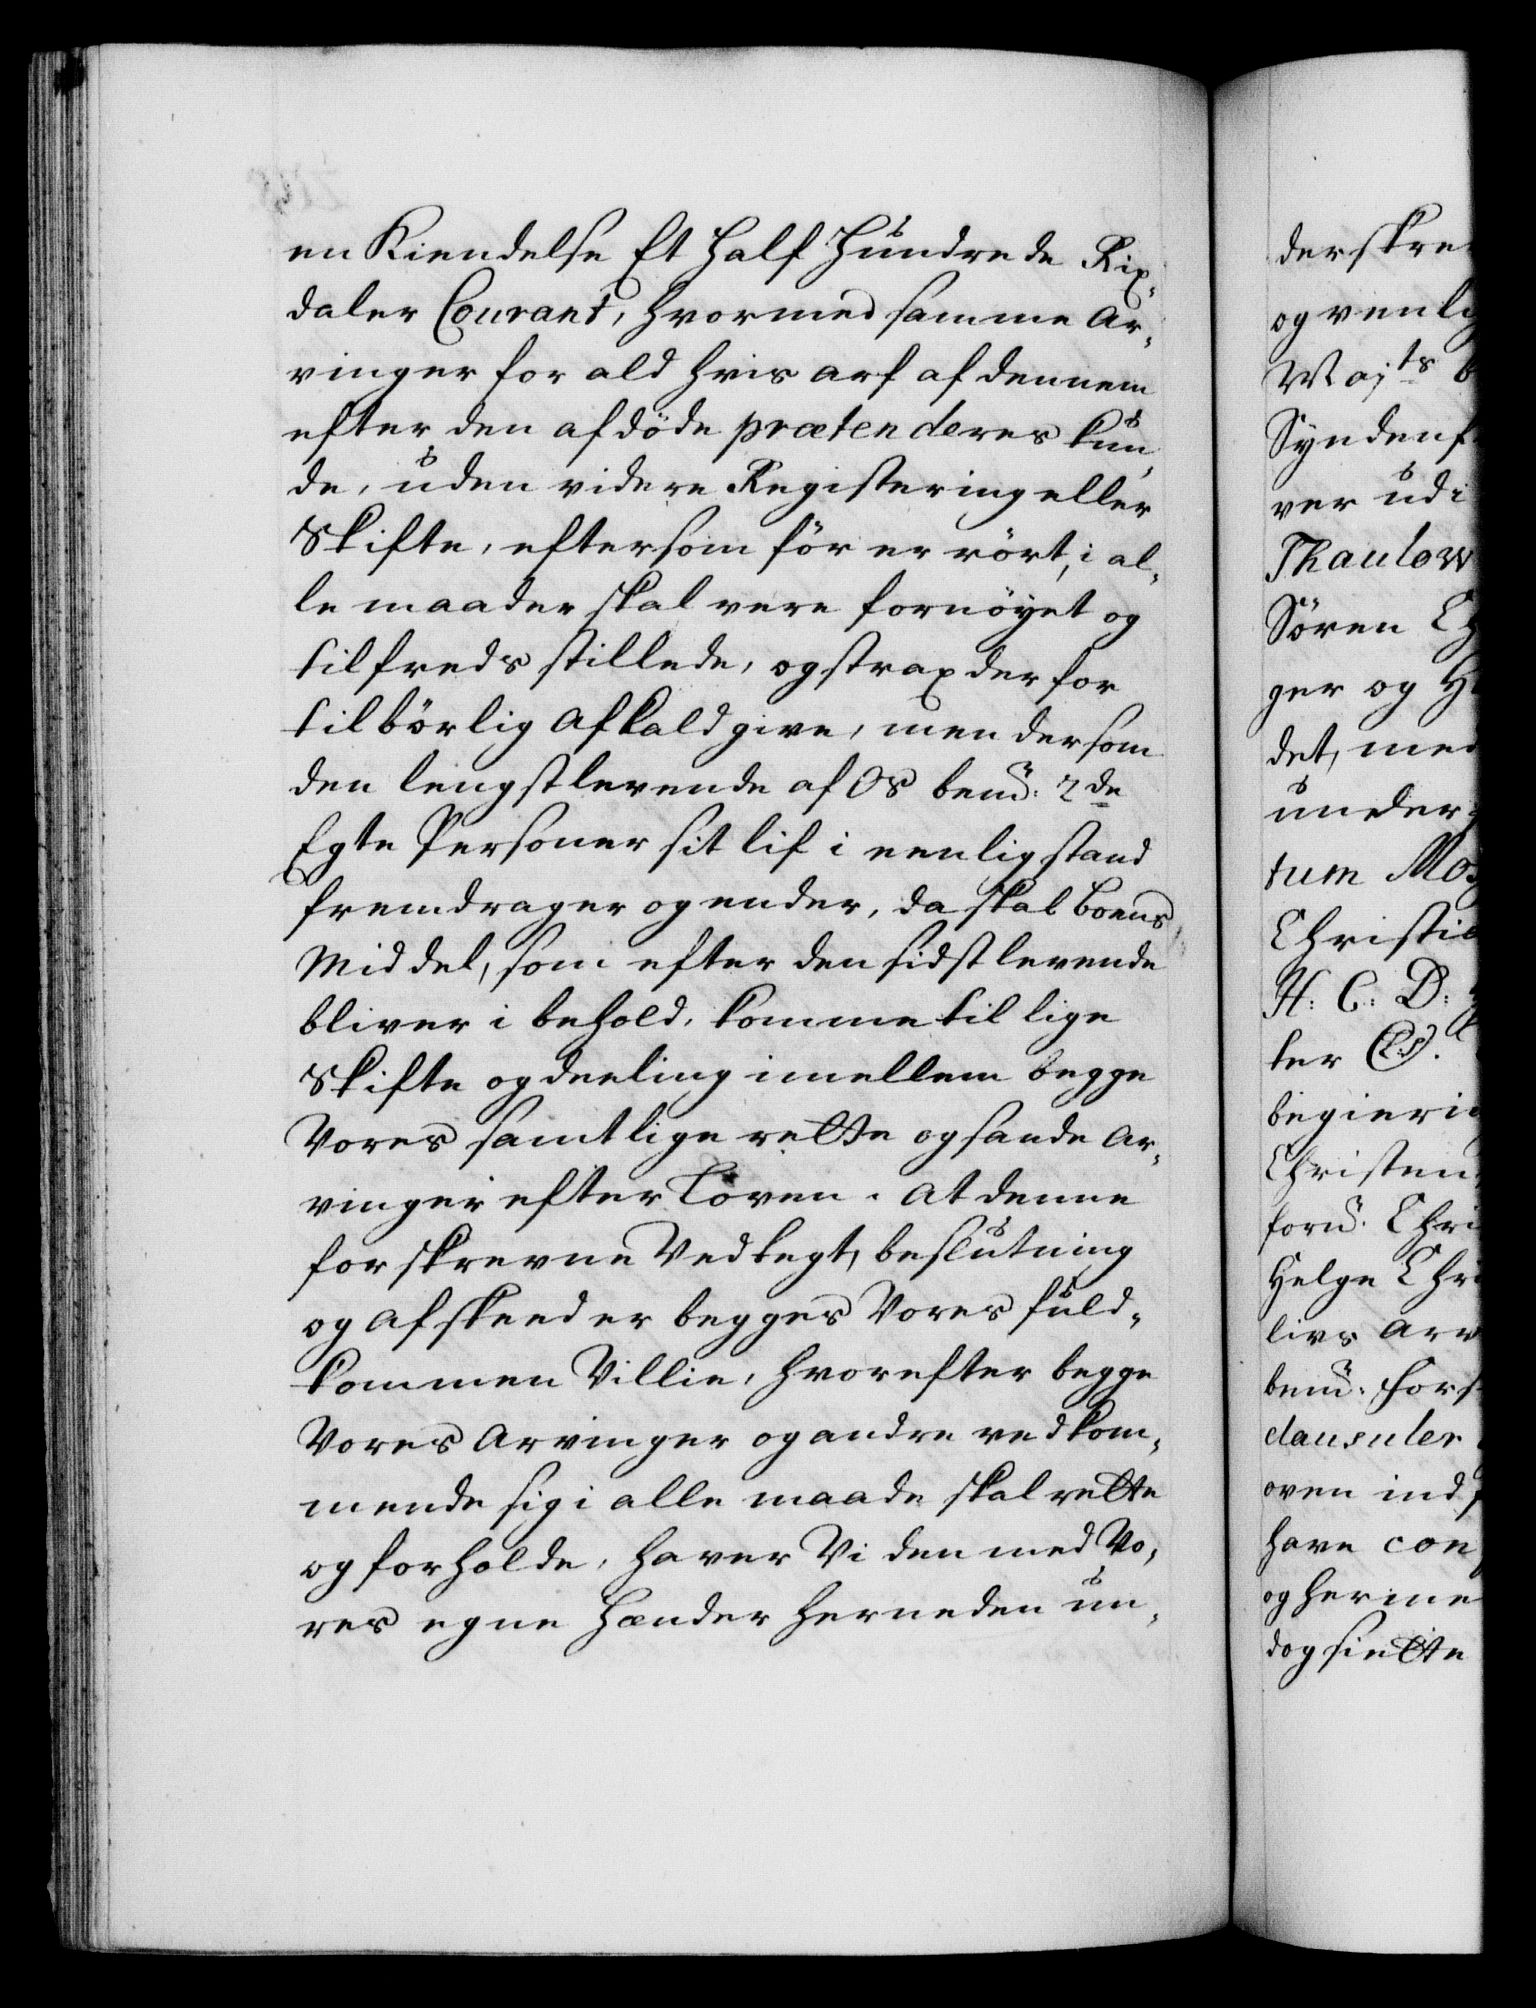 en Kiendelse Et Half Hundrede Rix-
daler Courant, hvormed samme Ar-
vinger for ald hvis arf af dennem
efter den afdöde prætenderes kun-
de, uden videre Registering eller
Skifte, eftersom för er rört, i al-
le maader skal vere fornöyet og
tilfreds stillede, og strax der for
tilbörlig Afkald give, men dersom
den lengstlevende af Os bem: 2de
Egte Personer sit lif i eenlig stand
fremdrager og ender, da skal boens
Middel, som efter den sidst levende
bliver i behold, komme til lige
Skifte og deeling imellem begge
Vores samtlige rette og sande Ar-
vinger efter Loven. At denne
forskrevne Vedtegt, beslutning
og Afskeed er begges Vores fuld-
kommen Villie, hvorefter begge
Vores Arvinger og andre vedkom-
mende sig i alle maade skal rette
og forholde, haver Vi den med Vo-
res egne Hænder herneden un-
derskre
og venlig
Maj:ts
Syndenf
ver udi
Thaulow
Sören Ch
ger og H
det, med
under
tum Mos
Christia
H: C: D:
ter (L.S).
begierig
Christen
forn: Chri
Helge Chri
livs Arv
bem: fors
clausuler
oven ind
have con
og herme
dog sielte